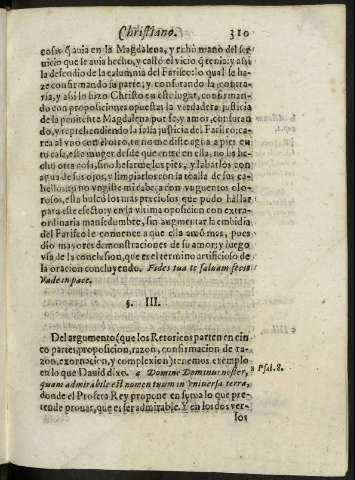 Christiano. 310
cosas q̃ auia en la Magdalena, y echò mano del ser-
uicio que le auia hecho, y callò el vicio q̃ tenia: y assi
la defendio de la calumnia del Fariseo: lo qual se ha-
ze confirmando su parte, y confutando la contra-
ria, y assi lo hizo Christo en este lugar, confirman-
do con proposiciones opuestas la verdadera justicia
de la penitente Magdalena por fe, y amor, confutan
do, y reprehendiendo la falsa justicia del Fariseo: ca-
rea al vno con el otro, tu no me diste agua a pies en
tu casa, esta muger desde que entrè en ella, no ha he-
cho otra cosa, sino besarme los pies, y labarlos con
agua de sus ojos, y limpiarlos con la toalla de sus ca-
bellos: tu no vngiste mi cabeça con vnguentos olo-
rosos, esta buscò los mas preciosos que pudo hallar
para este efecto: y en la vltima oposicion con extra-
ordinaria mansedumbre, sin augmentar la embidia
del Fariseo le conuence a que ella amò mas, pues
dio mayores demonstraciones de su amor: y luego
vsa de la conclusion, que es el termino artificioso de
la oracion concluyendo. Fides tua te saluam fecit
Vade in pace.
§. III.
Del argumento (que los Retoricos parten en cin
co partes, proposicion, razon, confirmacion de ra-
zon, exornacion, y complexion) tenemos exemplo
en lo que Dauid dixo. a Domine Dominus noster,
a Psal. 8.
quam admirabile est nomen tuum in vniuersa terra,
donde el Profeta Rey propone en suma lo que pre-
tende prouar, que es ser admirable. Y en los dos ver-
sos